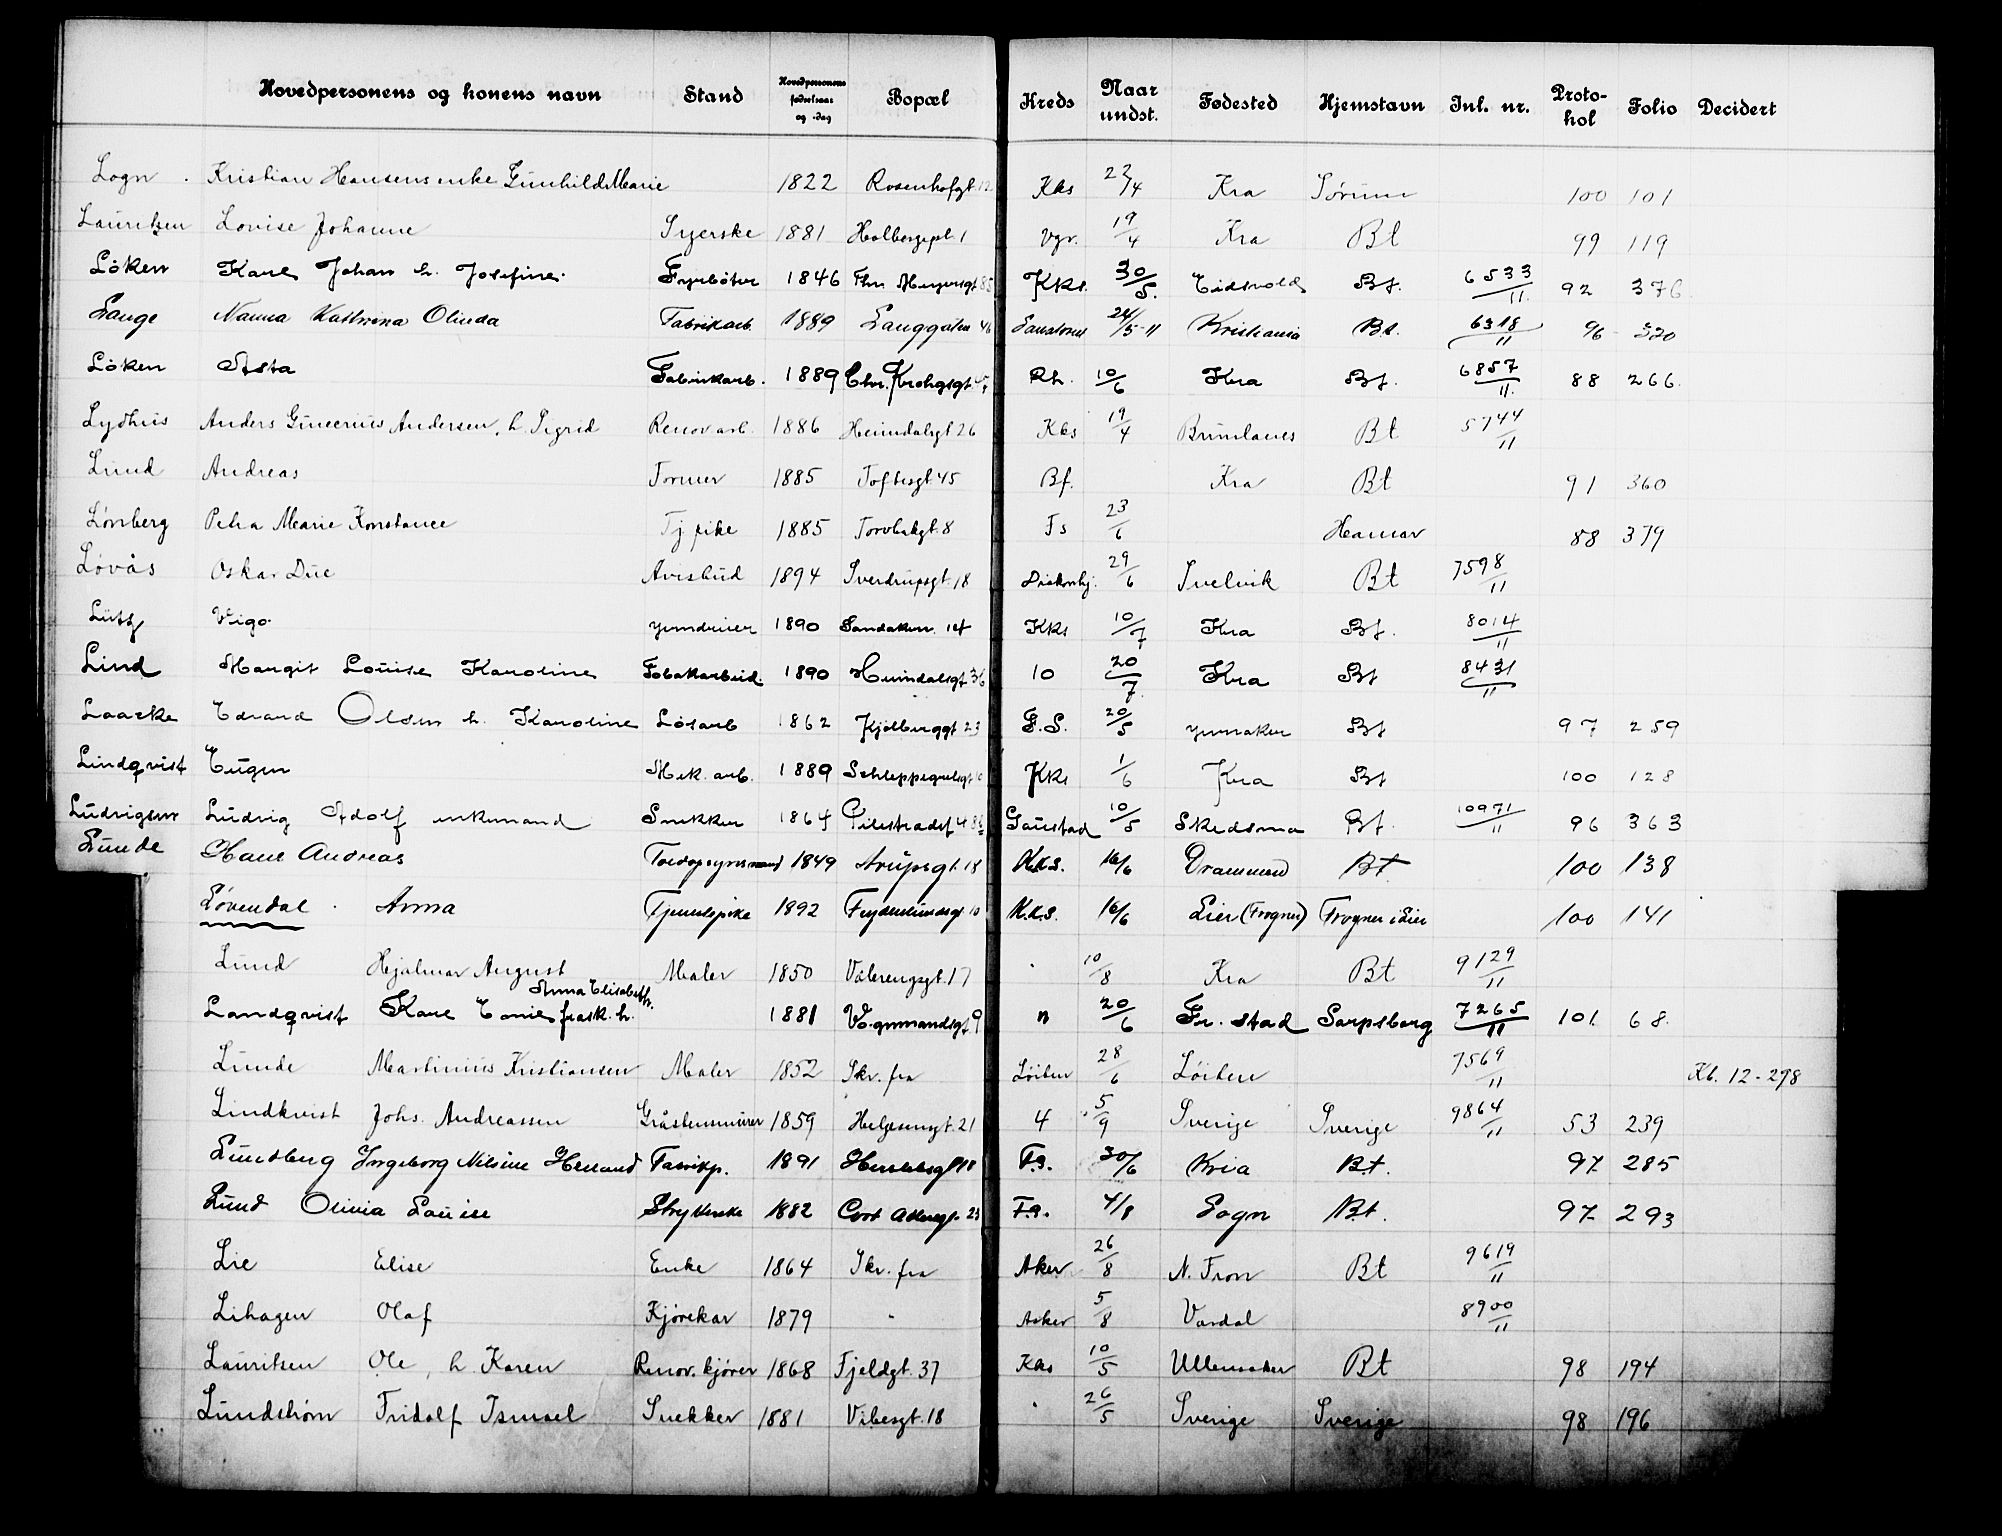 Hovedpersonens og konens navn Stand Hovedpersonens fødselsaar og -dag Bopæl Kreds Naar undst. Fødested Hjemstavn Inl. nr. Protokol Folio Decidert
Logn Kristian Hansens enke Gunhild Marie 1822 Rosenhofgt. 12 Kks 22/4 Kra Sørum 100 101
Lauritzen Lovise Johanne Syerske 1881 Holbergspl. 1 Vgr. 19/4 Kra Bt 99 119
Løken Karl Johan h. Josefine Fyrbøter 1846 Thv. Meyersgt 85 Kks. 30/5. Eidsvold Bt. 6533/11. 92 376
Lange Nanna Kathrina Olinda Fabrikarb. 1889 Langgaten 46 24/5-11 Kristiania Bt. 6318/11 96 320
Løken Asta Fabrikarb. 1889 Chr. Krohgsgt. Rh. 10/6 Kra Bt. 6857/11. 88 266.
Lydhus Anders Gunerius Andersen, h. Sigrid Renov.arb. 1886 Heimdalsgt 26 Kks 19/4 Brunlanes Bt 5744/11
Lund Andreas Former 1885 Toftesgt. 45 Bf. Kra Bt 91 360
Lønberg Petra Marie Konstance Tj. pike 1885 Torvbakgt. 8 Fs 23/6 Hamar 88 379
Løvås Oskar Due Avisbud 1894 Sverdrupsgt. 18 Diakonhj. 29/6 Svelvik Bt 7598/11
Lütz Vigo 1890 Sandakerv. 14 Kks 10/7 Kra Bt. 8014/11
Lind Margit Louise Karoline Tobakarbeid. 1890 Heimdalsgt 36 10 20/7. Kra Bt 8431/11
Laache Edvard Olsen h. Karoline Løsarb 1862 Kjølberggt 23 F.S. 20/5 Bt 97 259
Lindqvist Eugen Mek. arb. 1889 Schleppegrelsgt 10 Kks 1/6 Kra Bt 100 128
Ludvigsen Ludvig Adolf enkemand Snekker 1864 Pilestrædet Gaustad 10/5 Skedsmo Bt. 10971/11 96 363
Lunde Hans Andreas 1849 Arupsgt. 18 K.k.S. 16/6 Drammen Bt 100 138
Løvendal Anna Tjenestepike 1892 Frydenlundsgt 10 K.k.S. 16/6 Lier (Frogner) Frogner i Lier 100 141
Lund Hjalmar August Maler 1850 Vålerengsgt. 17 " 10/8 Kra Bt 9129/11
Landqvist Karl Emil frask. h. Anna Elisabeth. 1881 Vognmandsgt 9 " 20/6 Fr. stad Sarpsborg 7265/11 101 68.
Lunde Martinius Kristiansen Maler 1852 Skr. fra Løiten 28/6 Løiten 7569/11 Kb. 12-298
Lindkvist Johs. Andreassen Gråstensmurer 1859 Helgesensgt. 21 4 5/9 Sverige Sverige 9864/11 53 239
Lundberg Ingeborg Nilsine Herland Fabrikp. 1891 Herslebsgt 18 F.s. 30/6 Kria Bt. 97 285
Lund Olivia Louise Strykerske 1882 Cort Adlersgt. 23 F.s. 4/8 Sogn Bt. 97 293
Lie Elise Enke 1864 Skr. fra Aker 26/8 N. Fron Bt 9619/11
Lihagen Olaf Kjørekar 1879 " Asker 5/8 Vardal 8900/11
Lauritsen Ole, h. Karen Renov. kjører 1868 Fjeldgt. 37 Kks 10/5 Ullensaker Bt 98 194
Lundstrøm Fridolf Ismael Snekker 1881 Vibesgt. 18 " 26/5 Sverige Sverige 98 196